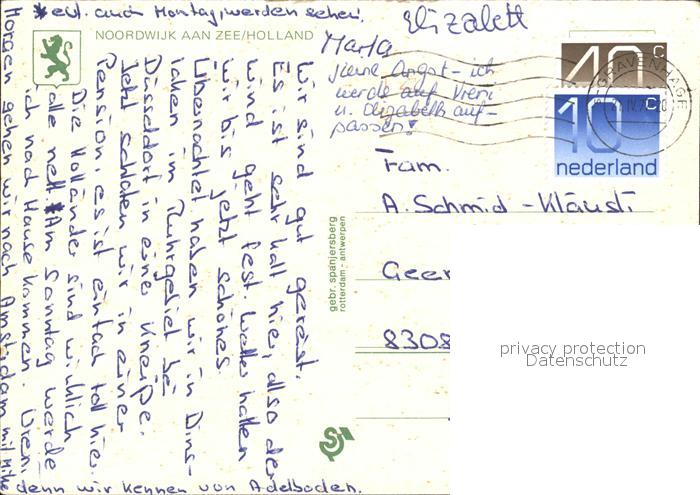 *evt. auch Montag, werden sehen.
NOORDWIJK AAN ZEE/HOLLAND
Wir sind gut gereist.
Es ist sehr kalt hier, also der
Wind geht fest. Wetter hatten
wir bis jetzt schönes.
Übernachtet haben wir in Dins-
laken im Ruhrgebiet bei
Düsseldorf in einer Kneipe.
Jetzt schlafen wir in einer
Pension, es ist einfach toll hier.
Die Holländer sind wirklich
alle nett. *Am Sonntag werde
ich nach Hause kommen. Vreni
Morgen gehen wir nach Amsterdam mit Mike
denn wir kennen von Adelboden.
Elizabeth
Maria
keine Angst - ich
werde auf Vreni
u. Elizabeth auf-
passen!
40 c
'S GRAVENHAGE
10 c
nederland
Fam.
A. Schmid - Kläusli
Geer
8308
gebr. spanjersberg
rotterdam - antwerpen
privacy protection
Datenschutz